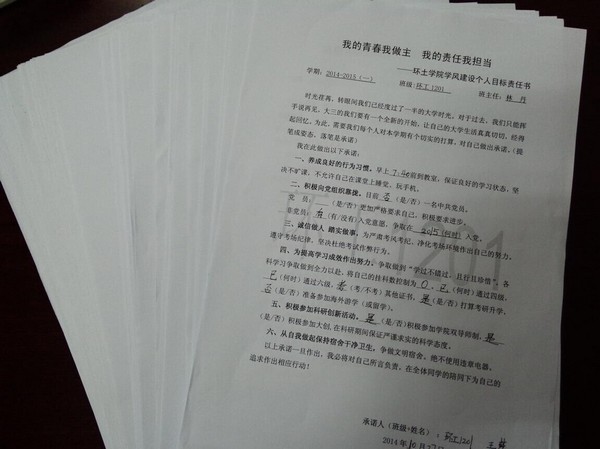 我的青春我做主 我的责任我担当
——环土学院学风建设个人目标责任书
学期：2014-2015（一） 班级：环工1201 班主任：林 丹
时光荏苒，转眼间我们已经度过了一半的大学时光。对于过去，我们只能挥
手说再见，大三的我们要有一个全新的开始，让自己的大学生活真真切切，经得
起回忆。为此，需要我们每个人对本学期有个切实的打算，对自己做出承诺。（提
笔成姿态、落笔是承诺）
我在此做出以下承诺：
一、养成良好的行为习惯。早上7.40前到教室，保证良好的学习状态，坚
决不旷课，不允许自己在课堂上睡觉、玩手机。
二、积极向党组织靠拢。目前 否（是/否）一名中共党员。
党 员：（是/否）更加严格要求自己，积极要求进步。
非党员：有（有/没有）入党意愿，争取在2015（何时）入党。
三、诚信做人 踏实做事，为严肃考风考纪，净化考场环境作出自己的努力。
遵守考场纪律，坚决杜绝考试作弊行为。
四、为提高学习成效作出努力。争取做到“学过不错过，且行且珍惜”。各
科学习争取做到全力以赴，将自己的挂科数控制为 0，已（何时）通过四级，
已（何时）通过六级，考（考/不考）其他证书，是（是/否）打算考研升学，
否（是/否）准备参加海外游学（或留学）。
五、积极参加科研创新活动。是（是/否）积极参加学院双导师制，是
（是/否）积极参加大创，在科研期间保证严谨求实的科学态度。
六、从自我做起保持宿舍干净卫生，争做文明宿舍。绝不使用违章电器。
以上承诺一旦作出，我必将对自己所言负责，在全体同学的陪同下为自己的
追求作出相应行动！
承诺人（班级+姓名）（环工1201 王
2014年10月27
环工1201